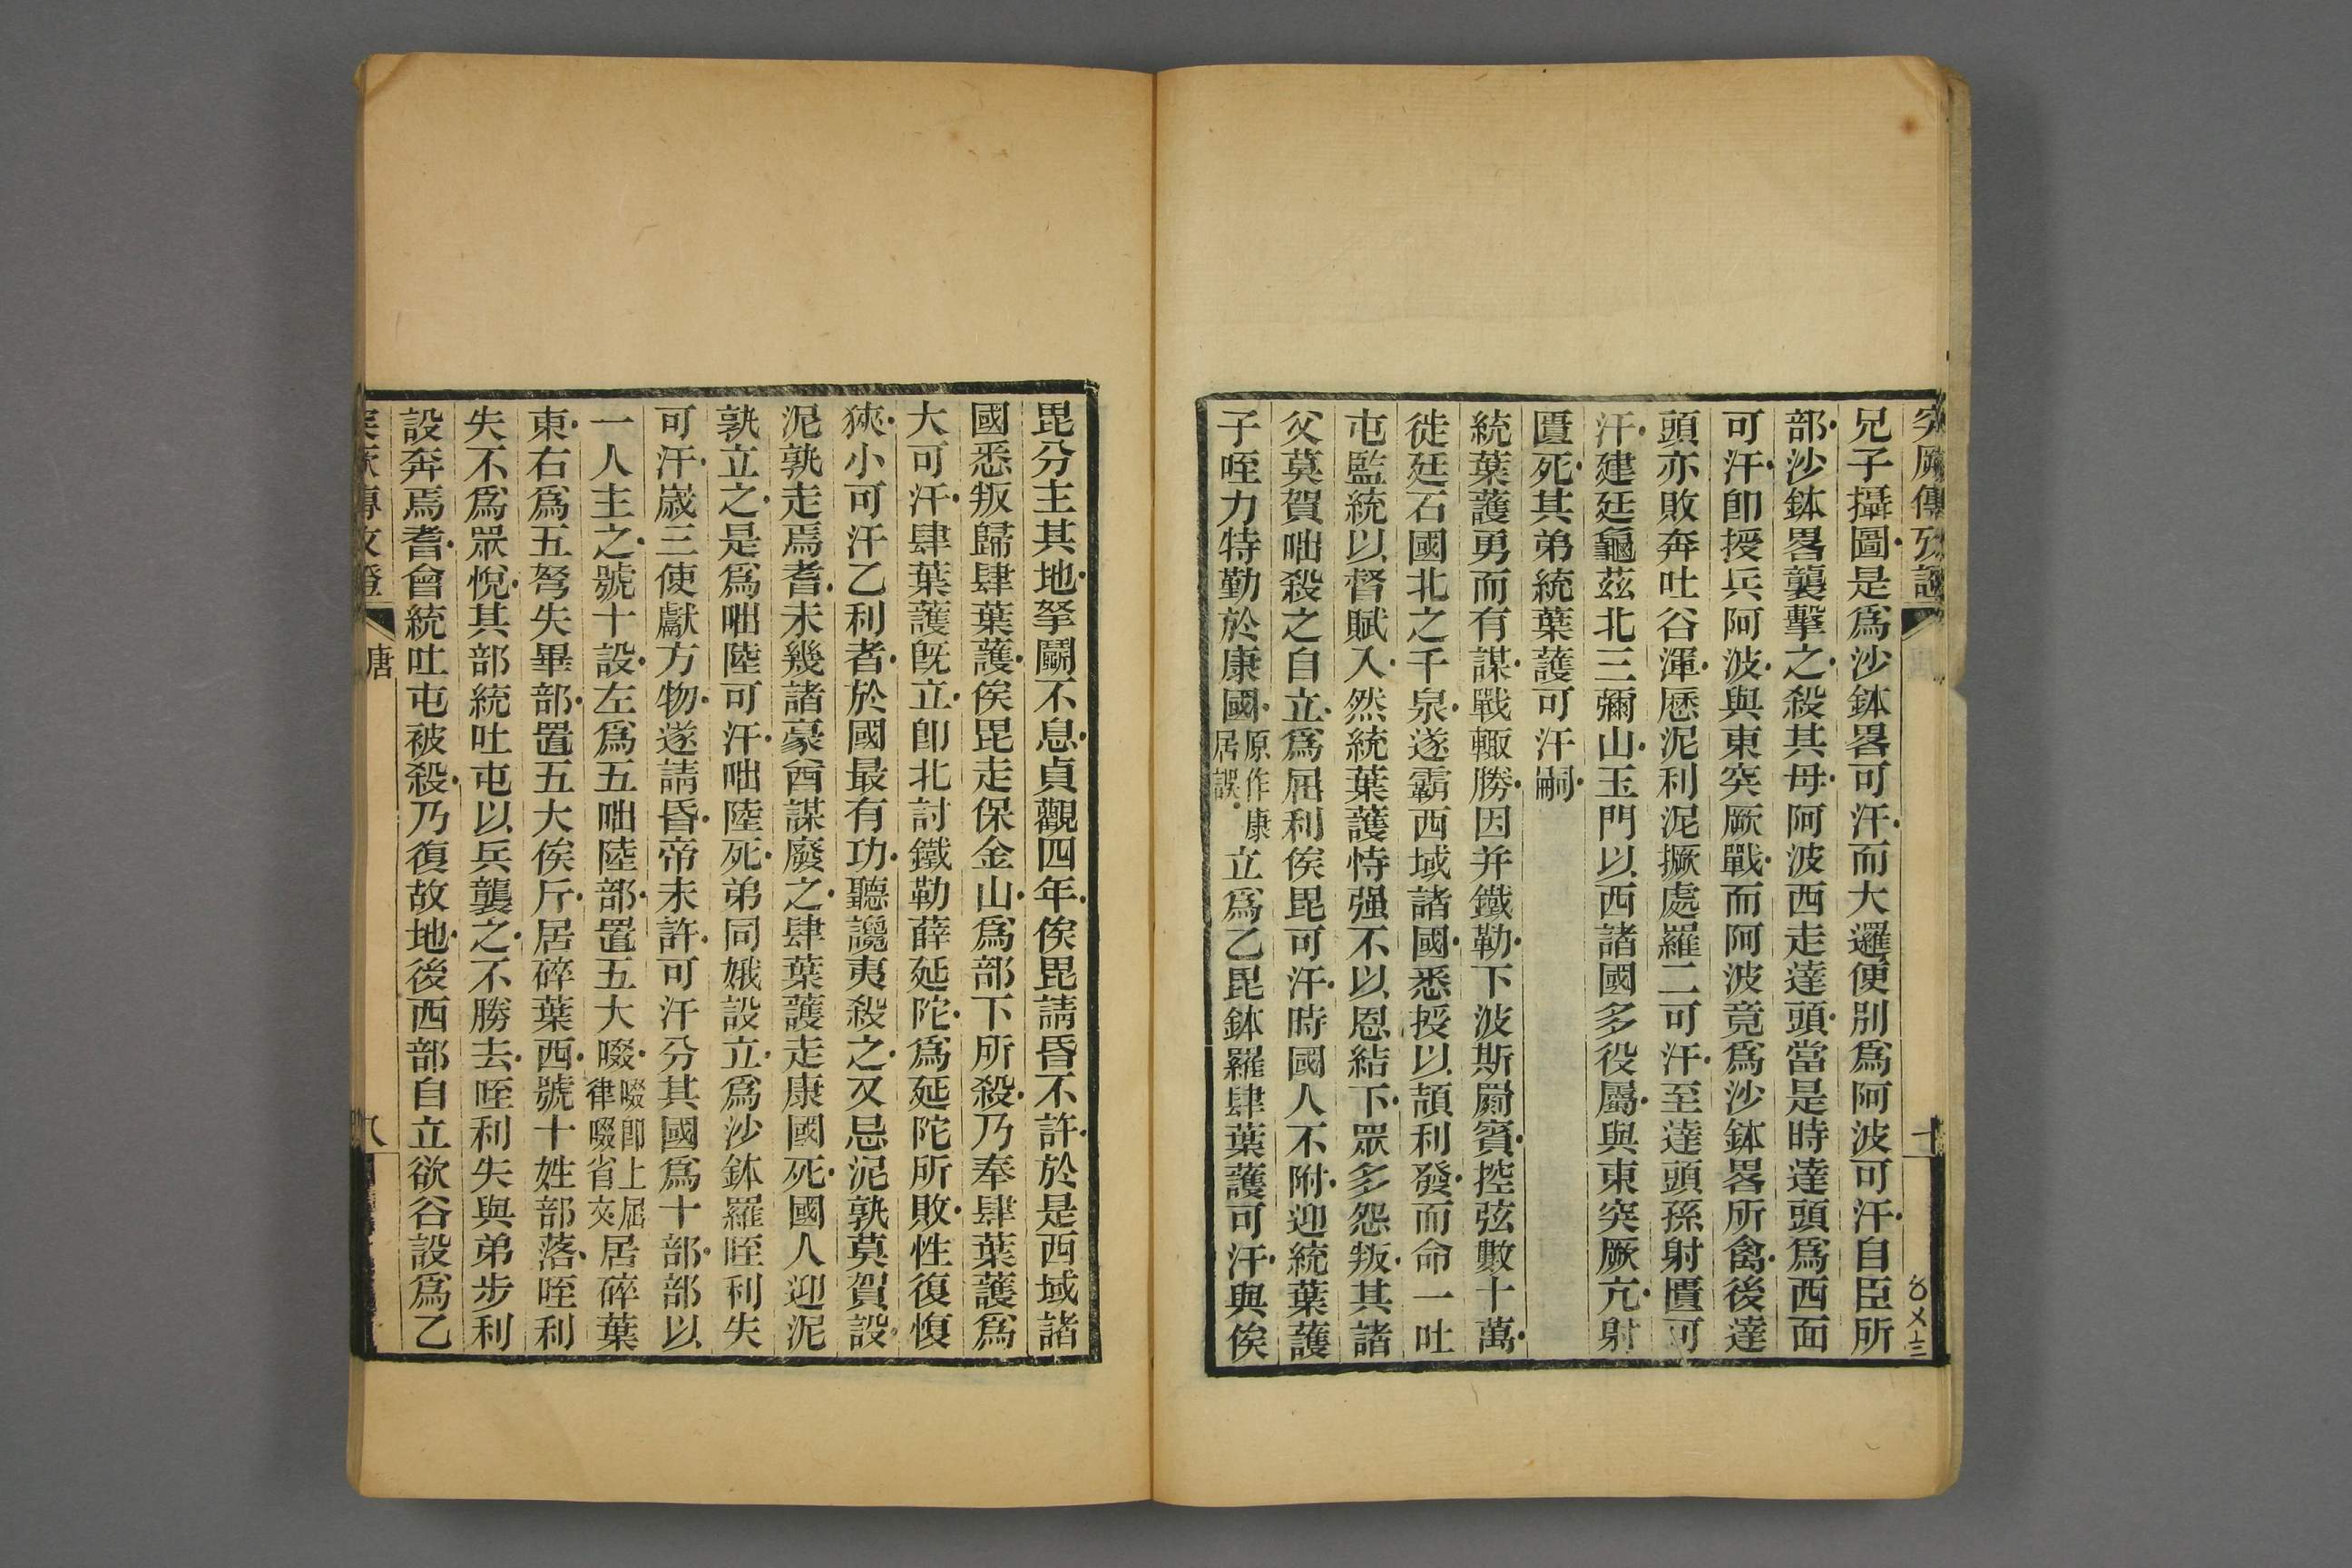 突厥傳攷證
十
兄子攝圖是爲沙鉢畧可汗而大邏便別爲阿波可汗自臣所
部沙鉢畧襲擊之殺其母阿波西走達頭當是時達頭爲西面
可汗卽授兵阿波與東突厥戰而阿波竟爲沙鉢畧所禽後達
頭亦敗奔吐谷渾歷泥利泥撅處羅二可汗至達頭孫射匱可
汗建廷龜茲北三彌山玉門以西諸國多役屬與東突厥亢射
匱死其弟統葉護可汗嗣
統葉護勇而有謀戰輒勝因并鐵勒下波斯罽賓控弦數十萬
徙廷石國北之千泉遂霸西域諸國悉授以頡利發而命一吐
屯監統以督賦入然統葉護恃强不以恩結下眾多怨叛其諸
父莫賀咄殺之自立爲屈利俟毘可汗時國人不附迎統葉護
子咥力特勤於康國原作康居誤立爲乙毘鉢羅肆葉護可汗與俟
毘分主其地拏鬬不息貞觀四年俟毘請昏不許於是西域諸
國悉叛歸肆葉護俟毘走保金山爲部下所殺乃奉肆葉護爲
大可汗肆葉護旣立卽北討鐵勒薛延陀爲延陀所敗性復愎
狹小可汗乙利者於國最有功聽讒夷殺之又忌泥孰莫賀設
泥孰走焉耆未幾諸豪酋謀廢之肆葉護走康國死國人迎泥
孰立之是爲咄陸可汗咄陸死弟同娥設立爲沙鉢羅咥利失
可汗嵗三使獻方物遂請昏帝未許可汗分其國爲十部部以
一人主之號十設左爲五咄陸部置五大啜啜卽上屈律啜省文居碎葉
東右爲五弩失畢部置五大俟斤居碎葉西號十姓部落咥利
失不爲眾悅其部統吐屯以兵襲之不勝去咥利失與弟步利
設奔焉耆會統吐屯被殺乃復故地後西部自立欲谷設爲乙
唐
八